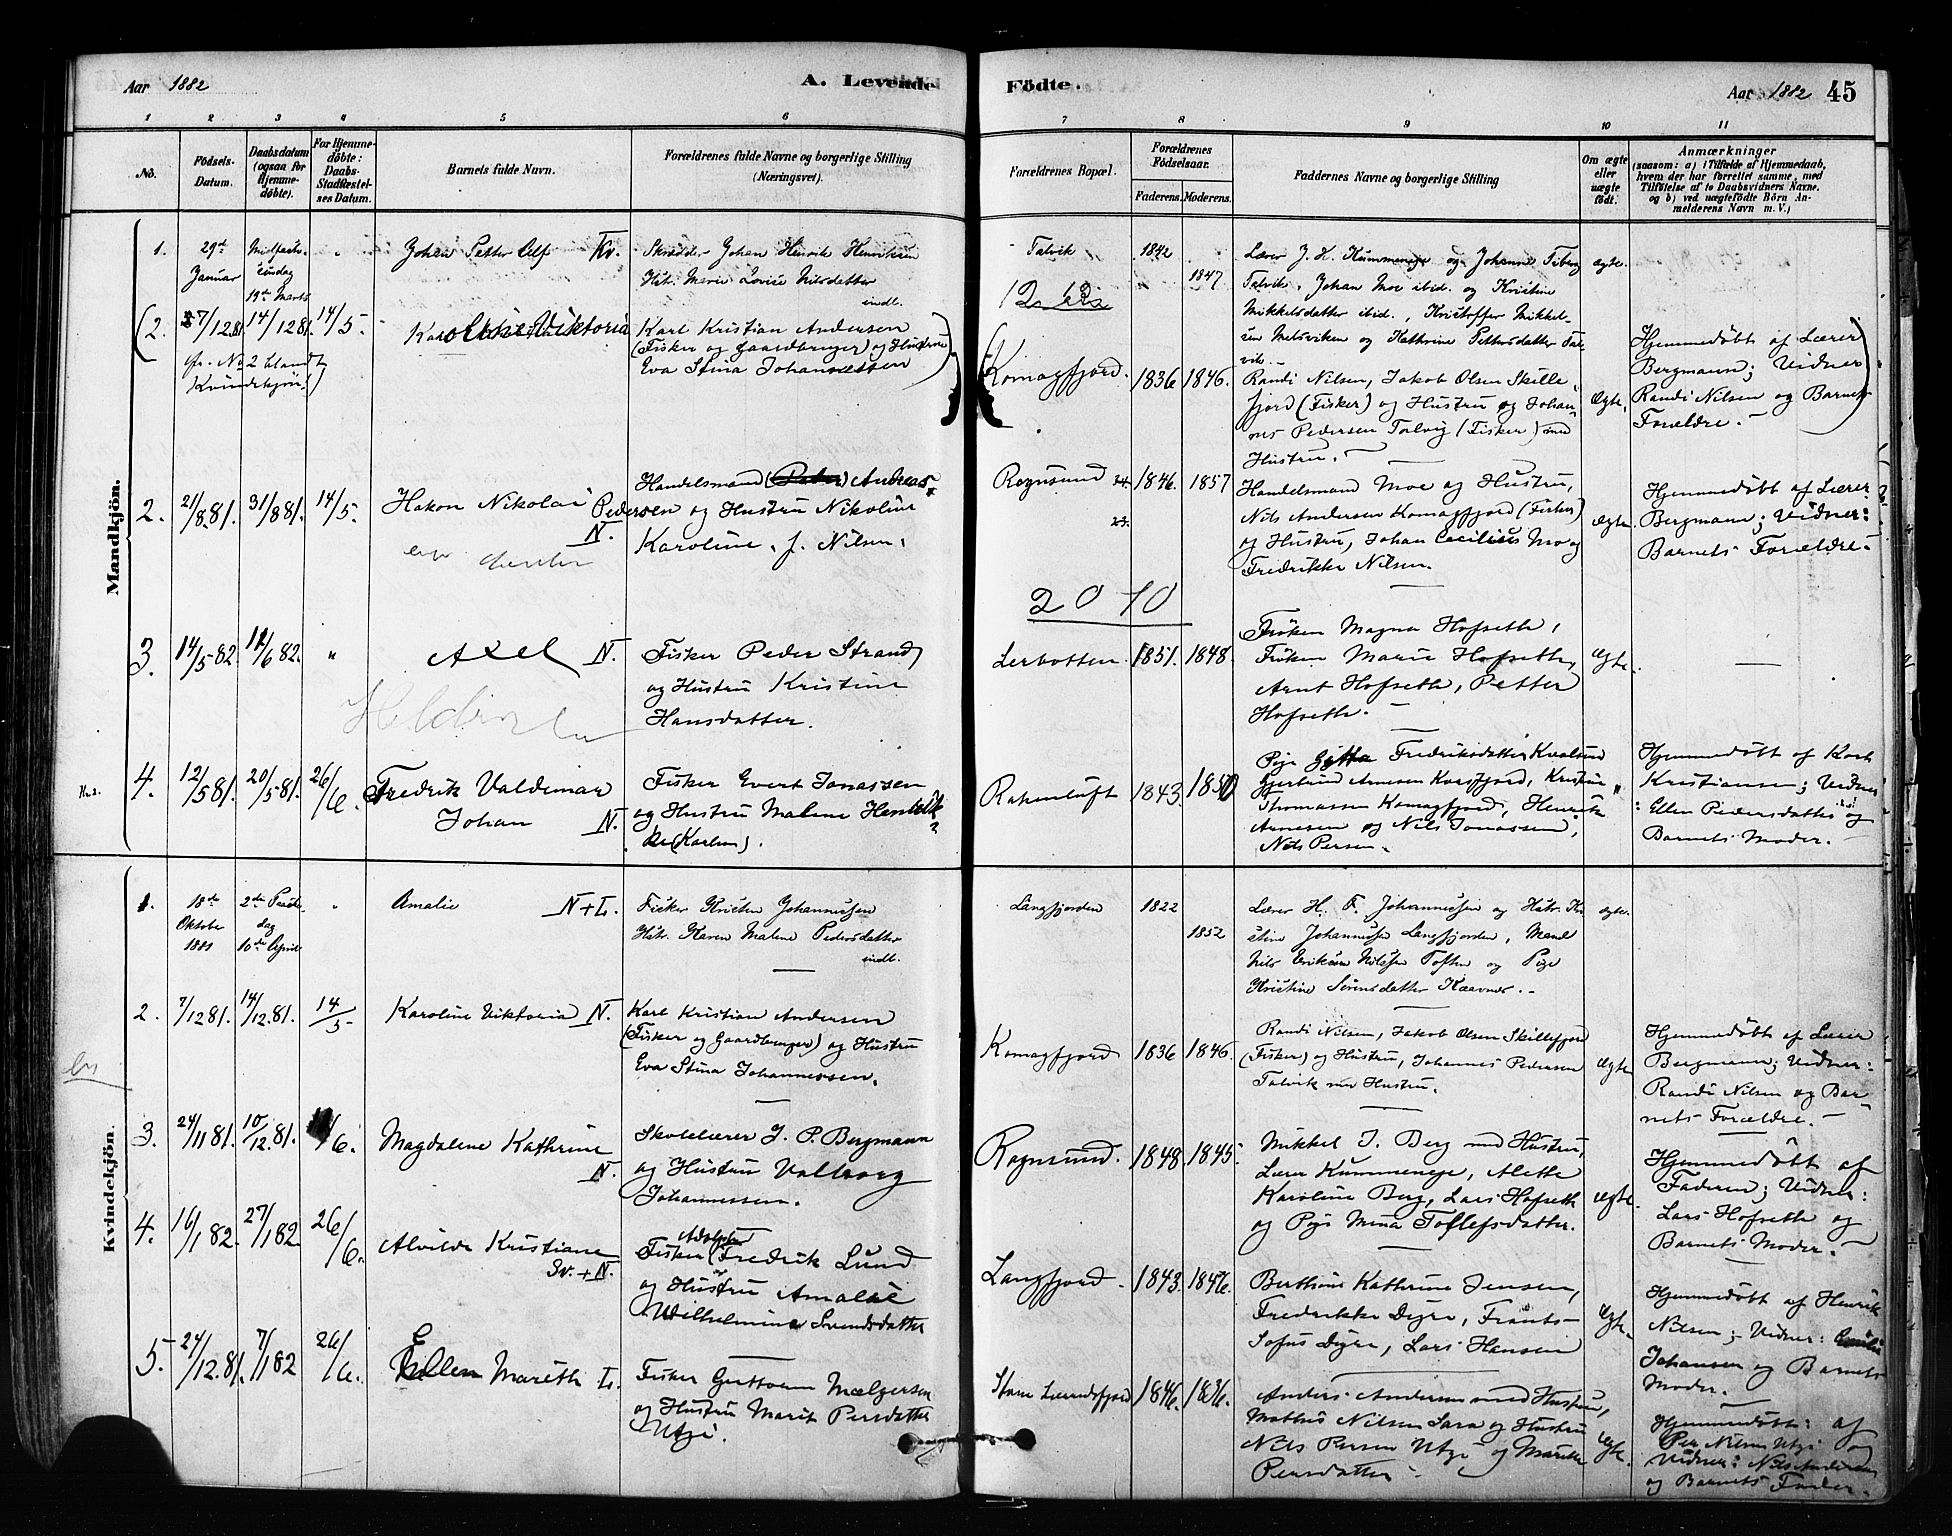 Aar 1882
A. Levende
1 2 3 4 5 6
No.
Födsels-
Datum.
Daabsdatum
(ogsaa for
Hjemme-
döbte).
For Hjemme-
döbte:
Daabs-
Stadfæstel-
ses Datum.
Barnets fulde Navn.
Forældrenes fulde Navne og borgerlige Stilling
(Næringsvei).
Mandkjön.
1.
29de
Januar
Midfaste
söndag
19de Marts
"
Johan Petter Alf Kv.
Skrædder Johan Henrik Henriksen
Hstr. Marie Lovise Nilsdatter
indl.
(2. 7/12 81. 14/12 81. 14/5.
cfr. No 2 blandt
Kvindekjön)
Viktoria
Karl Kristian Andersen
(Fisker og Gaardbruger) og Hustru
Eva Stina Johannessen
2. 21/8 81. 31/8 81. 14/5.
Hakon Nikolai
N.
Handelsmand Andreas
Pedersen og Hustru Nikoline
Karoline, f. Nilsen.
3. 14/5 82. 11/6 82. "
Axel N.
Fisker Peder Strand
og Hustru Kristine
Hansdatter.
4. 12/5 81. 20/5 81. 26/6
Fredrik Valdemar
Johan N.
Fisker Evert Jonassen
og Hustru Malene
(Karlsen).
Kvindekjön.
1.
18de
Oktober
1881
2den Paaske
dag
10de April
"
Amalie N+L.
Fisker Kristen Johannessen
Hstr. Karen Malene Pedersdatter
indl.
2. 7/12 81. 14/12 81. 14/5
Karoline Viktoria N.
Karl Kristian Andersen
(Fisker og Gaardbruger) og Hustru
Eva Stina Johannessen.
3. 24/11 81. 10/12 81. /6.
Magdalene Kathrine
N.
Skolelærer J. P. Bergmann
og Hustru Valborg
Johannessen.
4. 16/1 82. 27/1 82 26/6.
Alvilde Kristiane
Sv.+N.
Adolph
Fisker Fredrik Lund
og Hustru Amalie
Wilhelmine Svendsdatter
5. 24/12 81. 7/1 82 26/6.
Ellen Mareth L.
Fisker Guttorm Mælgersen
og Hustru Marit Persdatter
Utzi.
Födte.
Aar 1882 45
7 8 9 10 11
Forældrenes Bopæl.
Forældrenes
Födselsaar.
Faderens. Moderens.
Faddernes Navne og borgerlige Stilling
Om ægte
eller
uægte
födt.
Anmærkninger
(saasom: a) i Tilfælde af Hjemmedaab,
hvem der har forrettet samme, med
Tilföielse af to Daabsvidners Navne.
og b) ved uægtefödte Börn An-
melderens Navn m. V.)
Talvik 1842
1847
Lærer J. K. Kummeneje og Johanne Tiberg
Talvik, Johan Moe ibid. og Kristine
Mikkelsdatter ibid., Kristoffer Mikkel-
sen Melsviken og Kathrine Pettersdatter Tal
vik.
ægte.
Komagfjord. 1836 1846.
Randi Nilsen, Jakob Olsen Skille-
fjord (Fisker) og Hustru og Johan-
nes Pedersen Talvig (Fisker) med
Hustru.
Ægte.
Hjemmedöbt af Lærer
Bergmann; Vidner
Randi Nilsen og Barnets
Forældre.
Rognsund 1846. 1857
Handelsmand Moe og Hustru,
Nils Andersen Komagfjord (Fisker)
og Hustru, Johan Cecilius Mo og
Fredrikke Nilsen.
Ægte.
Hjemmedöbt af Lærer
Bergmann; Vidner:
Barnets Forældre.
20 10
Lerbotten. 1851. 1848.
Fröken Magna Hofseth,
Fröken Marie Hofseth,
Arnt Hofseth, Petter
Hofseth.
ægte.
Rakenluft 1843. 1850
Pige Fredriksdatter Kvalsund
Gjertrud Arnesen Korsfjord, Kristian
Thomassen Komagfjord, Henrik
Arnesen og Nils Jonassen,
Nils Persen.
"
Hjemmedöbt af Karl
Kristiansen; Vidner
: Ellen Pedersdatter og
Barnets Moder.
Langfjorden 1822
1852
Lærer H. F. Johannessen og Hstr. Kri
stine Johannessen Langfjorden, Mand
Nils Eriksen Nilssen Toften og Pige
Kristine Sörensdatter Kaavnes.
ægte.
Komagfjord 1836 1846.
Randi Nilsen, Jakob Olsen Skillefjord
(Fisker) og Hustru, Johannes Pedersen
Talvik med Hustru.
Ægte
Hjemmedöbt af Lærer
Bergmann; Vidner:
Randi Nilsen og Bar-
nets Forældre.
Rognsund. 1848 1845.
Mikkel J. Berg med Hustru,
Lærer Kummeneje, Alette
Karoline Berg, Lars Hofseth
og Pige Mina Tollefsdatter.
Ægte.
Hjemmedöbt af
Faderen; Vidner:
Lars Hofseth og
Barnets Moder.
Langfjord. 1843. 1846.
Berthine Kathrine Jensen,
Fredrikke Dyre, Frants
Sofus Dyre, Lars Hansen
Ægte.
Hjemmedöbt af Henrik
Nilsen; Vidner:
Johansen og Barnets
Moder.
Store Lerresfjord 1846. 1836.
Anders Andersen med Hustru,
Mathis Nilsen Sara og Hustru
Nils Persen Utzi og Marith
Persdatter.
Ægte.
Hjemmedöbt: af
Per Nilsen Utzi og
Vidner: Nils Andersen
og Barnets Fader.